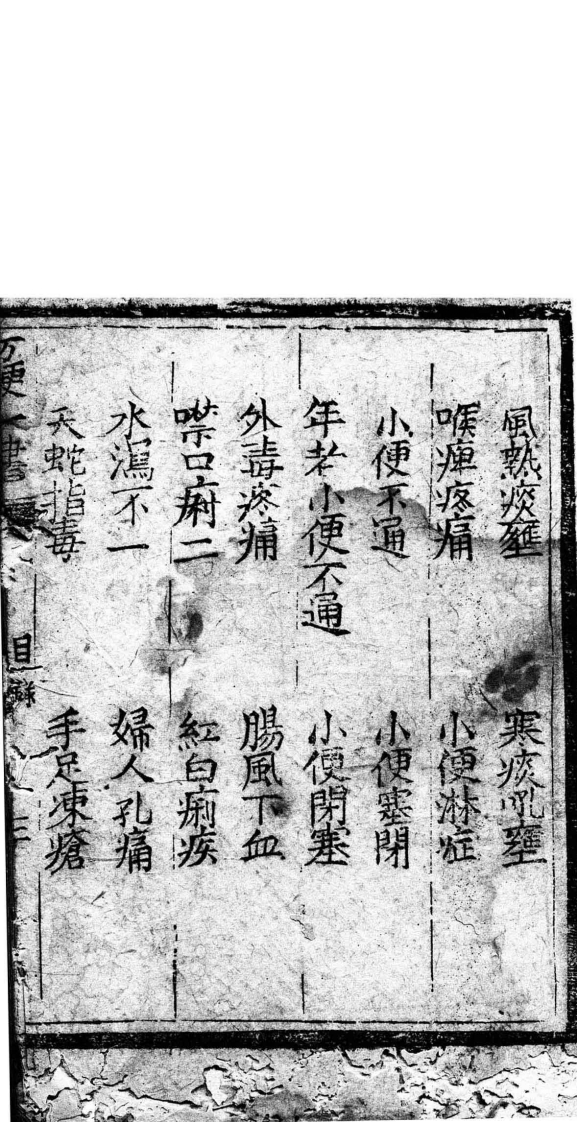 風熱痰壅 寒痰吼壅
喉痺疼痛 小便淋症
小便不通 小便塞閉
年老小便不通 小便閉塞
外毒疼痛 腸風下血
噤口痢二 紅白痢疾
水瀉不一 婦人孔痛
天蛇指毒 手足凍瘡
万便 書 目錄 三